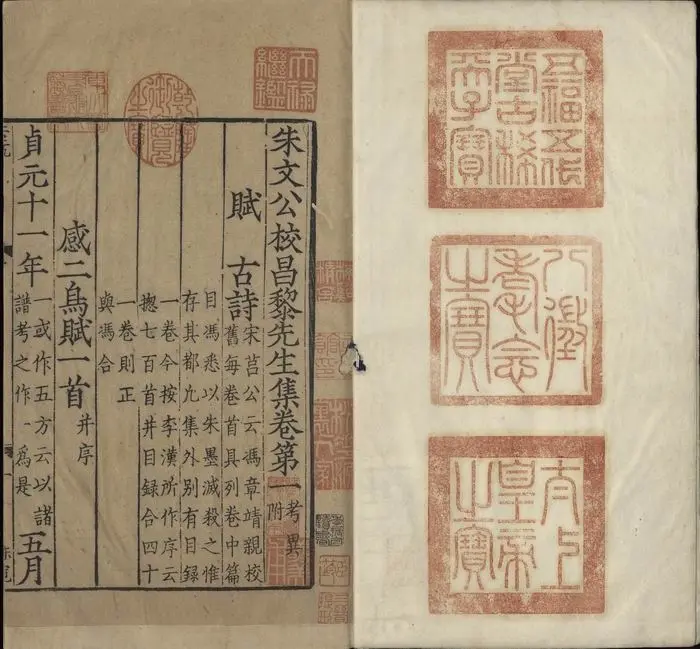 五福五代
堂古稀
天子寶
八徵
耄念
之寶
太上
皇帝
之寶
天祿
繼鑑
乾隆
御覽
之寶
朱文公校昌黎先生集卷第一 考異附
賦 古詩 宋莒公云馮章靖親校
舊每卷首具列卷中篇
目馮悉以朱墨滅殺之惟
存其都凡集外別有目録
一卷今按李漢所作序云
揔七百首并目録合四十
一卷則正
與馮合
感二鳥賦一首 并序
貞元十一年 一或作五方云以諸譜考之作一爲是 五月